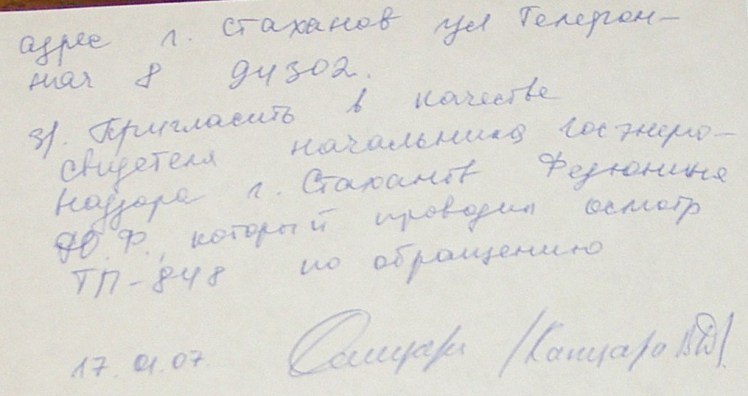 адрес г. Стаханов ул Телефон-
ная 8 94302.
3). Пригласить в качестве
свидетеля начальника Госэнерго-
надзора г. Стаханов Федюнина
Ю.Ф., который проводил осмотр
ТП-848 по обращению
17.01.07